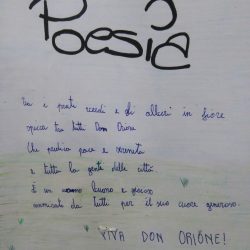 Poesia
Tra i prati verdi e gli alberi in fiore
spicca tra tutti Don Orione
Che predica pace e serenità
a tutta la gente delle città.
È un uomo buono e
ammirato da tutti per il suo cuore generoso.
VIVA DON ORIONE!